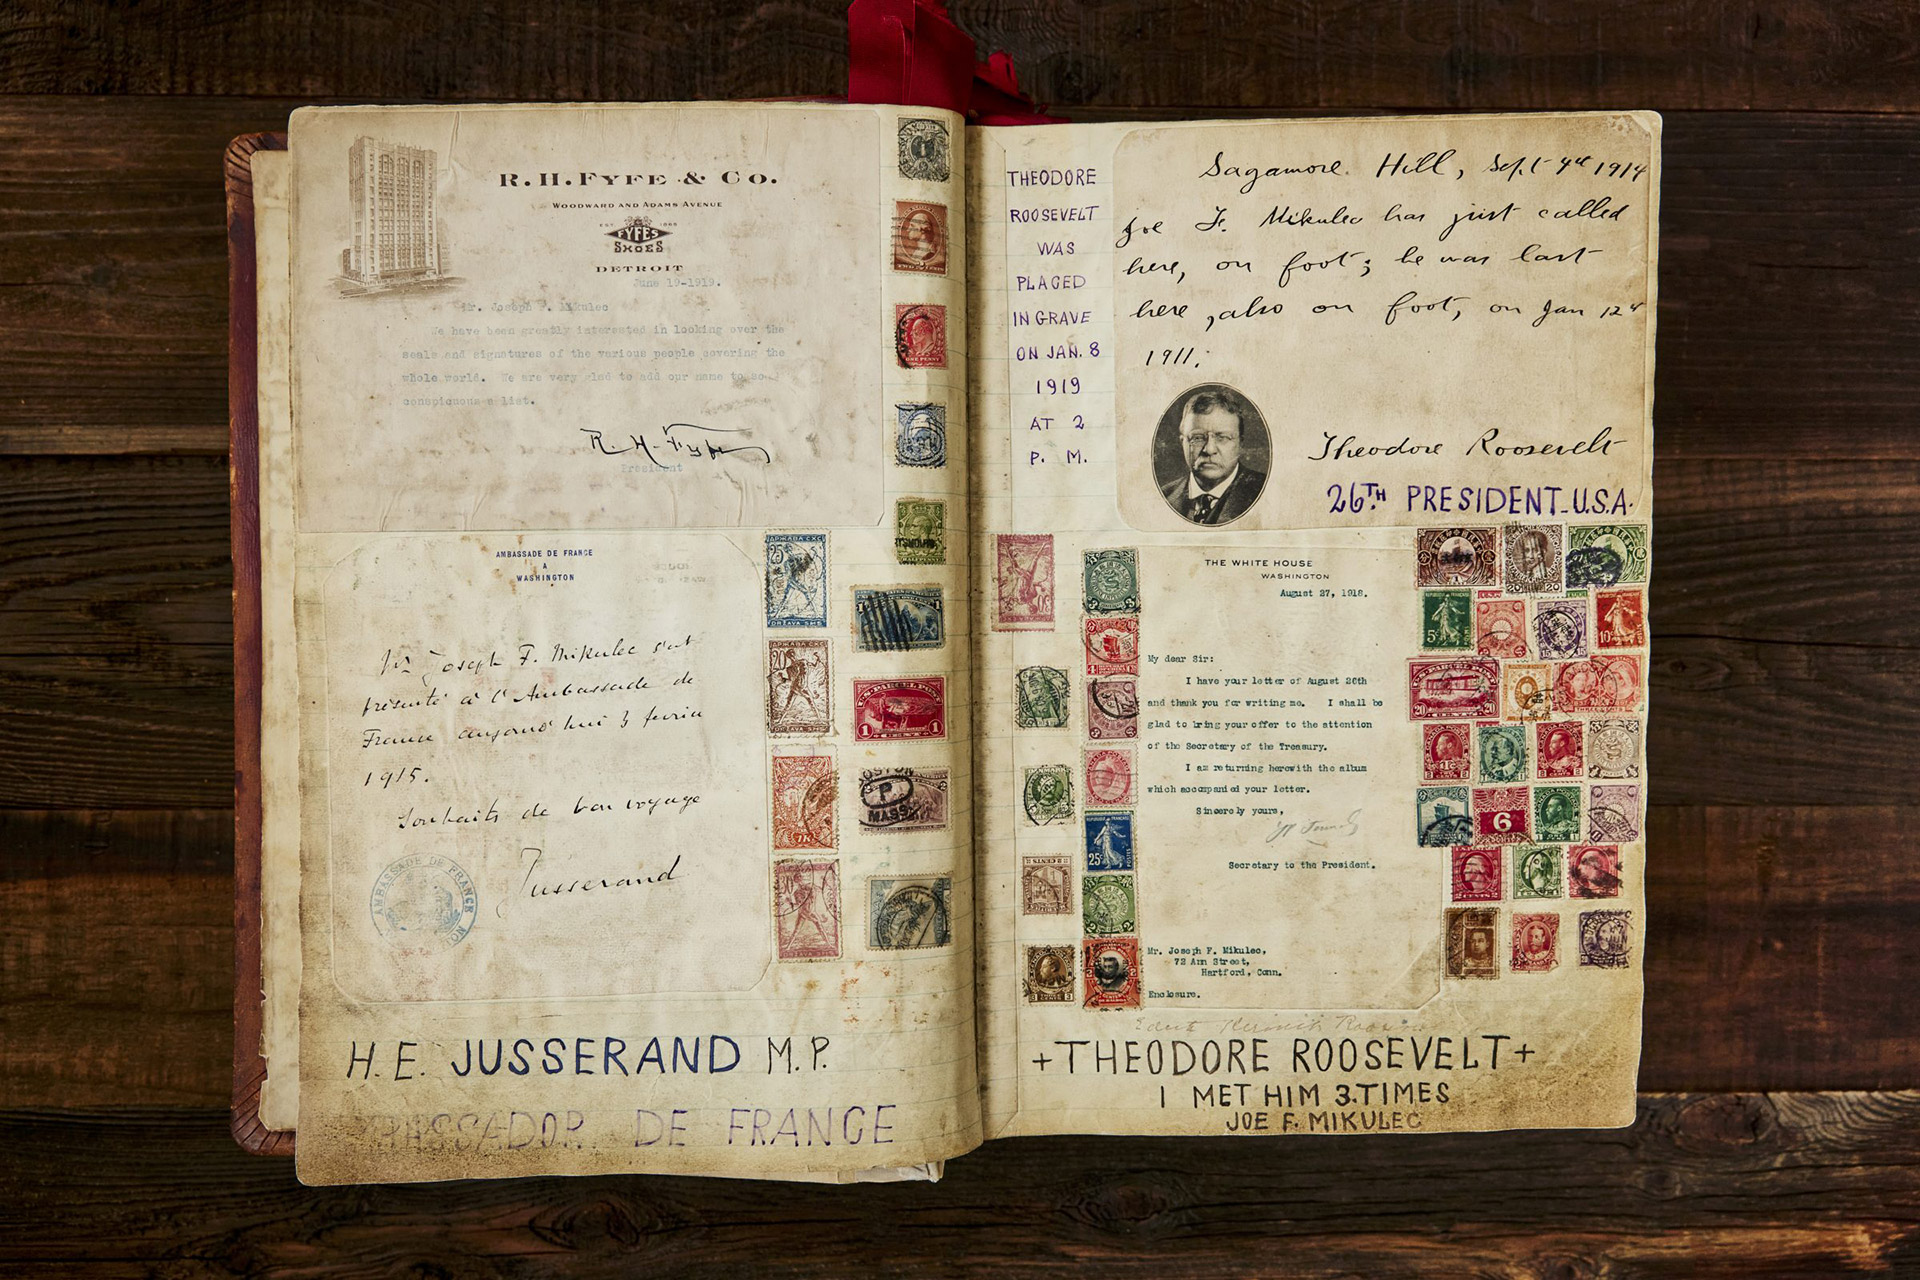 R. H. FYFE & CO.
WOODWARD AND ADAMS AVENUE
EST. 1865
FYFES
SHOES
DETROIT
June 19-1919.
Mr. Joseph F. Mikulec
We have been greatly interested in looking over the
seals and signatures of the various people covering the
whole world. We are very glad to add our name to so
conspicuous a list.
R. H. Fyfe
President
AMBASSADE DE FRANCE
A
WASHINGTON
Mr Joseph F. Mikulec s'est
présenté à l'Ambassade de
France aujourd'hui 3 février
1915.
Souhaits de bon voyage
Jusserand
AMBASSADE DE FRANCE
H. E. JUSSERAND M. P.
AMBASSADOR DE FRANCE
THEODORE
ROOSEVELT
WAS
PLACED
IN GRAVE
ON JAN. 8
1919
AT 2
P. M.
Sagamore Hill, Sept 4th 1914
Joe F. Mikulec has just called
here, on foot; he was last
here, also on foot, on Jan 12th
1911.
Theodore Roosevelt
26TH PRESIDENT U.S.A.
THE WHITE HOUSE
WASHINGTON
August 27, 1918.
My dear Sir:
I have your letter of August 26th
and thank you for writing me. I shall be
glad to bring your offer to the attention
of the Secretary of the Treasury.
I am returning herewith the album
which accompanied your letter.
Sincerely yours,
Secretary to the President.
Mr. Joseph F. Mikulec,
72 Ann Street,
Hartford, Conn.
Enclosure.
+THEODORE ROOSEVELT+
I MET HIM 3 TIMES
JOE F. MIKULEC
ONE PENNY
25 ДРЖАВА СХС
DRŽAVA SHS
20 ДРЖАВА СХС
DRŽAVA SHS
U.S. PARCEL POST
1 1
BOSTON
P
MASS.
25c
5c
10c
20 20
6